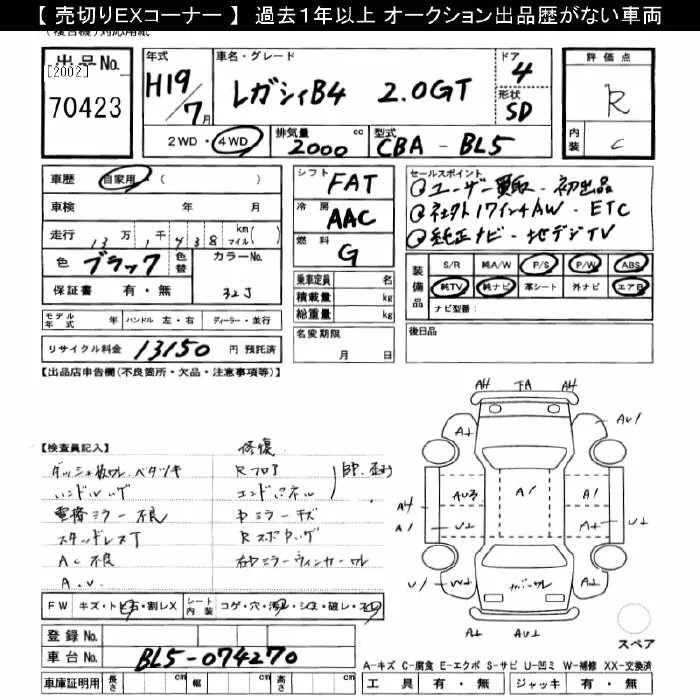 【 売切りEXコーナー 】 過去1年以上 オークション出品歴がない車両
出品No. [2002] 70423
年式 H19/7月
車名・グレード レガシィB4 2.0GT
ドア 4
形状 SD
評価点 R
内装 C
2WD・4WD 排気量 2000 cc 型式 CBA - BL5
車歴 自家用・( )
車検 年 月
走行 13万1千438 km マイル( )
色 ブラック 色替 カラーNo. 32J
保証書 有・無
シフト FAT
冷房 AAC
燃料 G
乗車定員 名
積載量 kg
総重量 kg
セールスポイント
①ユーザー買取・初出品
②ネェクト17インチAW・ETC
③純正ナビ・地デジTV
装備品 S/R 純A/W P/S P/W ABS
純TV 純ナビ 革シート 外ナビ エアB
ナビ型番:
モデル年式 年 ハンドル 左・右 ディーラー・並行
リサイクル料金 13150 円 預託済
名変期限 月 日
後日品
【出品店申告欄(不良箇所・欠品・注意事項等)】
【検査員記入】 修復
ダッシュ板ワレ、ベタツキ Rフロア
ハンドルハゲ エンドパネル
電格ミラー不良 中ミラーキズ
スタッドレスT
AC不良 右ドミラーウィンカーワレ
A.V.
AH TA AH
A⊥ AU1
AU3 A1 A1
A4 A1 U⊥ A⊥
U1 W⊥ カバーワレ A⊥
A⊥ AU⊥
スペア
FW キズ・トビ石・割レX シート内装 コゲ・穴・汚レ・シミ・破レ・スレ
登録No.
車台No. BL5-074270
A-キズ C-腐食 E-エクボ S-サビ U-凹ミ W-補修 XX-交換済
車庫証明用 長さ cm 幅 cm 高さ cm 工具 有・無 ジャッキ 有・無